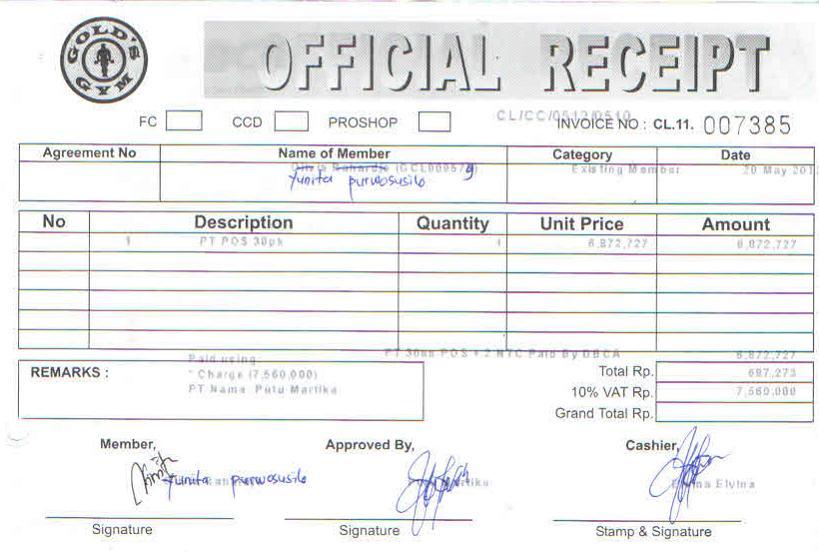 GOLD'S GYM
OFFICIAL RECEIPT
FC CCD PROSHOP
CL/CC/0512/0510
INVOICE NO : CL.11. 007385
Agreement No Name of Member Category Date
Existing Member 20 May 201
Yunita purwosusilo
No Description Quantity Unit Price Amount
1 PT POS 30pk 1 6,872,727 6,872,727
Paid using: PT 30ss POS + 2 NYC Paid By DBCA 6,872,727
REMARKS : * Charge (7,560,000) Total Rp. 687,273
PT Nama Putu Martika 10% VAT Rp. 7,560,000
Grand Total Rp.
Member, Approved By, Cashier,
Yunita purwosusilo Elvina
Signature Signature Stamp & Signature